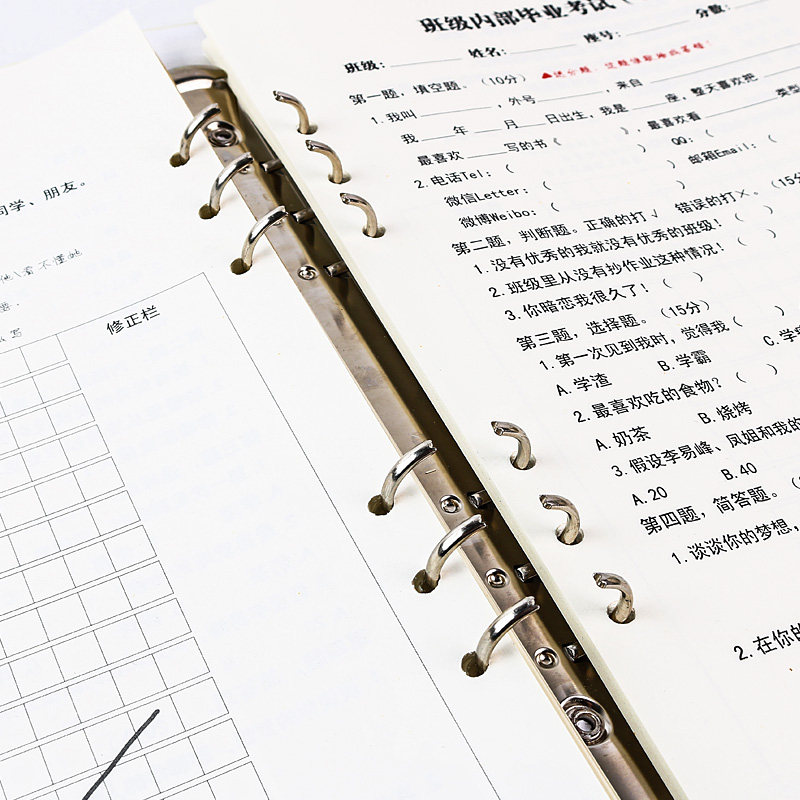 同学、朋友。
看不懂她
修正栏
班级内部毕业考试(
班级: 姓名: 座号: 分数:
第一题，填空题。(10分)
1.我叫 ，外号 ，来自
我 年 月 日出生，我是 座，整天喜欢把
最喜欢 写的书《 》，最喜欢看 类型
2.电话Tel:( ) QQ:(
微信Letter:( ) 邮箱Email:(
微博Weibo:( )
第二题，判断题。正确的打√ 错误的打×。(15分
1.没有优秀的我就没有优秀的班级!( )
2.班级里从没有抄作业这种情况!( )
3.你暗恋我很久了!( )
第三题，选择题。(15分)
1.第一次见到我时，觉得我( )
A.学渣 B.学霸 C.学
2.最喜欢吃的食物?( )
A.奶茶 B.烧烤
3.假设李易峰、凤姐和我的
A.20 B.40
第四题，简答题。(
1.谈谈你的梦想，
2.在你的